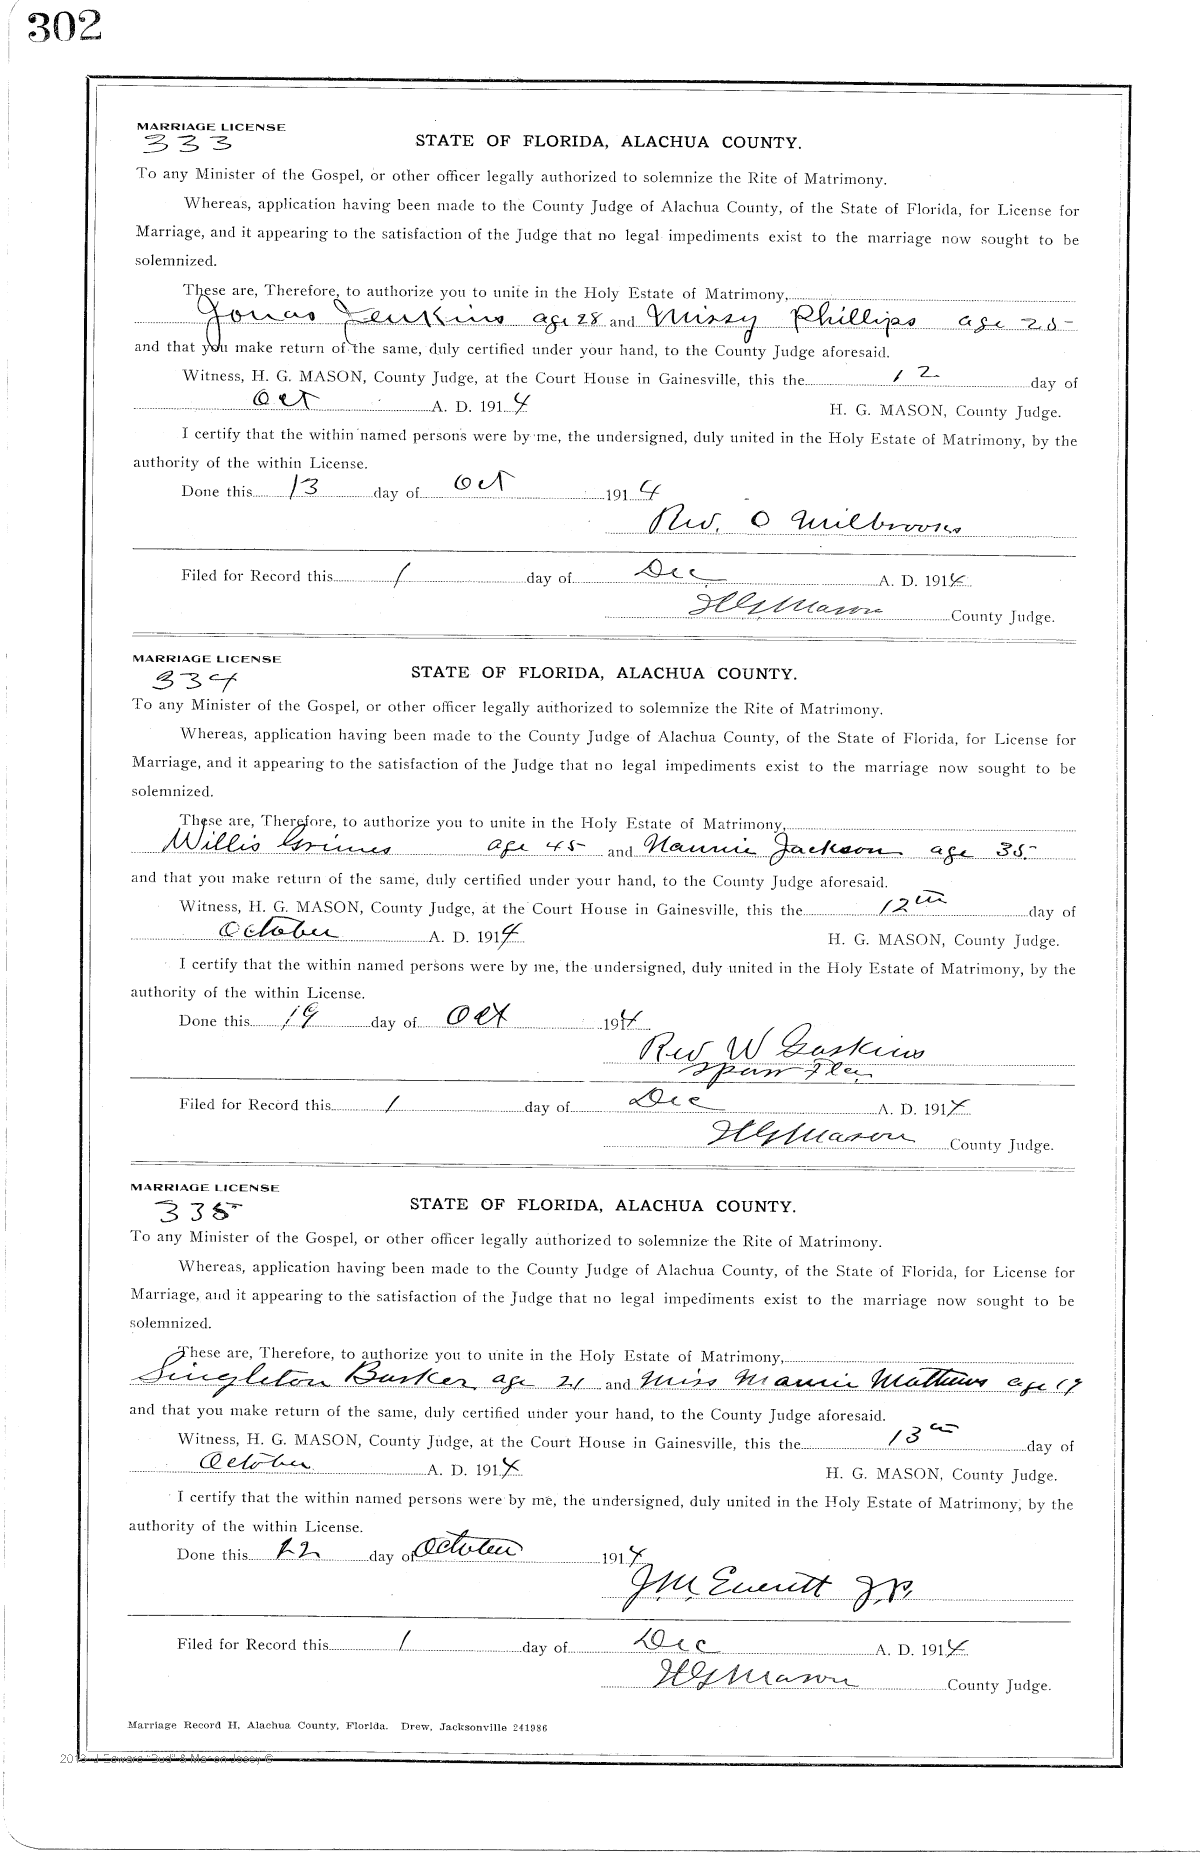 302
MARRIAGE LICENSE
333
STATE OF FLORIDA, ALACHUA COUNTY.
To any Minister of the Gospel, or other officer legally authorized to solemnize the Rite of Matrimony.
Whereas, application having been made to the County Judge of Alachua County, of the State of Florida, for License for
Marriage, and it appearing to the satisfaction of the Judge that no legal impediments exist to the marriage now sought to be
solemnized.
These are, Therefore, to authorize you to unite in the Holy Estate of Matrimony,
Jonas Jenkins age 28 and Missy Phillips age 25
and that you make return of the same, duly certified under your hand, to the County Judge aforesaid.
Witness, H. G. MASON, County Judge, at the Court House in Gainesville, this the 12 day of
Oct A. D. 1914 H. G. MASON, County Judge.
I certify that the within named persons were by me, the undersigned, duly united in the Holy Estate of Matrimony, by the
authority of the within License.
Done this 13 day of Oct 1914
Rev. O Milbrooks
Filed for Record this 1 day of Dec A. D. 1914
HG Mason County Judge.
MARRIAGE LICENSE
334
STATE OF FLORIDA, ALACHUA COUNTY.
To any Minister of the Gospel, or other officer legally authorized to solemnize the Rite of Matrimony.
Whereas, application having been made to the County Judge of Alachua County, of the State of Florida, for License for
Marriage, and it appearing to the satisfaction of the Judge that no legal impediments exist to the marriage now sought to be
solemnized.
These are, Therefore, to authorize you to unite in the Holy Estate of Matrimony,
Willis Grimes age 45 and Nannie Jackson age 35
and that you make return of the same, duly certified under your hand, to the County Judge aforesaid.
Witness, H. G. MASON, County Judge, at the Court House in Gainesville, this the 12th day of
October A. D. 1914 H. G. MASON, County Judge.
I certify that the within named persons were by me, the undersigned, duly united in the Holy Estate of Matrimony, by the
authority of the within License.
Done this 19 day of Oct 1914
Rev W Gaskins
Fla
Filed for Record this 1 day of Dec A. D. 1914
HG Mason County Judge.
MARRIAGE LICENSE
335
STATE OF FLORIDA, ALACHUA COUNTY.
To any Minister of the Gospel, or other officer legally authorized to solemnize the Rite of Matrimony.
Whereas, application having been made to the County Judge of Alachua County, of the State of Florida, for License for
Marriage, and it appearing to the satisfaction of the Judge that no legal impediments exist to the marriage now sought to be
solemnized.
These are, Therefore, to authorize you to unite in the Holy Estate of Matrimony,
Singleton Barker age 21 and Miss Mamie Mathews age 19
and that you make return of the same, duly certified under your hand, to the County Judge aforesaid.
Witness, H. G. MASON, County Judge, at the Court House in Gainesville, this the 13th day of
October A. D. 1914 H. G. MASON, County Judge.
I certify that the within named persons were by me, the undersigned, duly united in the Holy Estate of Matrimony, by the
authority of the within License.
Done this 22 day of October 1914
J.M. Everitt J.P.
Filed for Record this 1 day of Dec A. D. 1914
HG Mason County Judge.
Marriage Record H, Alachua County, Florida. Drew, Jacksonville 241986